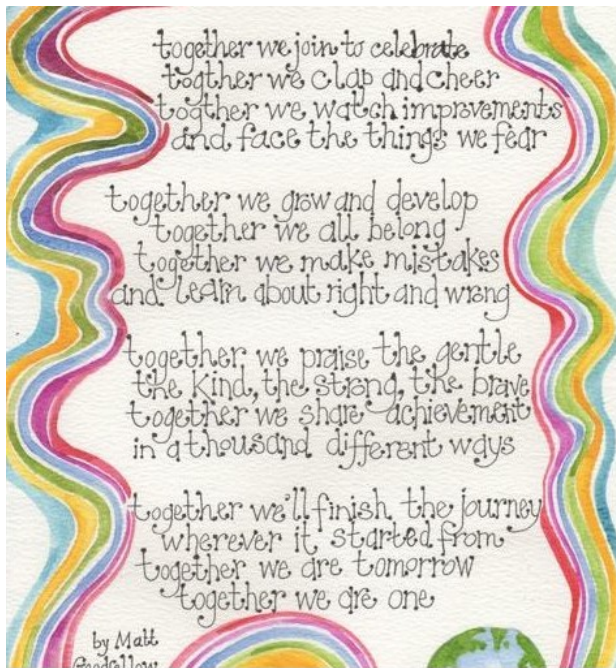 together we join to celebrate
togther we clap and cheer
togther we watch improvements
and face the things we fear
together we grow and develop
together we all belong
together we make mistakes
and learn about right and wrong
together we praise the gentle
the kind, the strong, the brave
together we share achievement
in a thousand different ways
together we'll finish the journey
wherever it started from
together we are tomorrow
together we are one
by Matt
Goodfellow